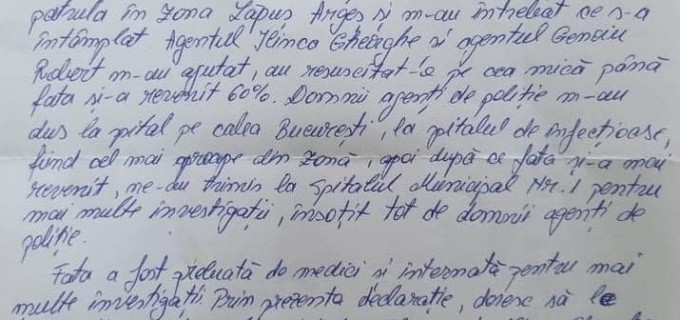 patrula în zona Lăpuș Argeș și m-au întrebat ce s-a
întâmplat Agentul Ilinca Gheorghe și agentul Genoiu
Robert m-au ajutat, au resuscitat-o pe cea mică până
fata și-a revenit 60%. Domnii agenți de poliție m-au
dus la spital pe calea București, la spitalul de infecțioase,
fiind cel mai aproape din zonă, apoi după ce fata și-a mai
revenit, ne-au trimis la Spitalul Municipal Nr. 1 pentru
mai multe investigații, însoțit tot de domnii agenți de
poliție.
Fata a fost preluată de medici și internată pentru mai
multe investigații. Prin prezenta declarație, doresc să le